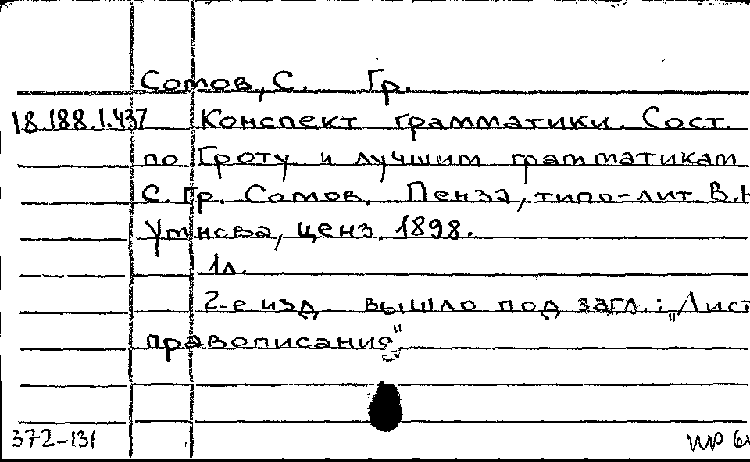 Сомов, С. Гр.
18.188.1.437 Конспект грамматики. Сост.
по Гроту и лучшим грамматикам
С. Гр. Сомов. Пенза, типо-лит. В.Н
ценз. 1898.
1 л.
2-е изд. вышло под загл.: „Лист
правописания"
372-131